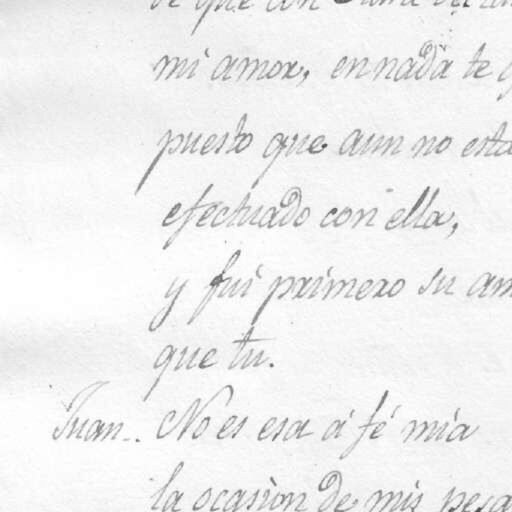 de que con
mi amor, en nada te
puesto que aun no esta
efectuado con ella,
y fui primero su am
que tu.
Juan.. No es esa á fé mia
la ocasion de mis pesa